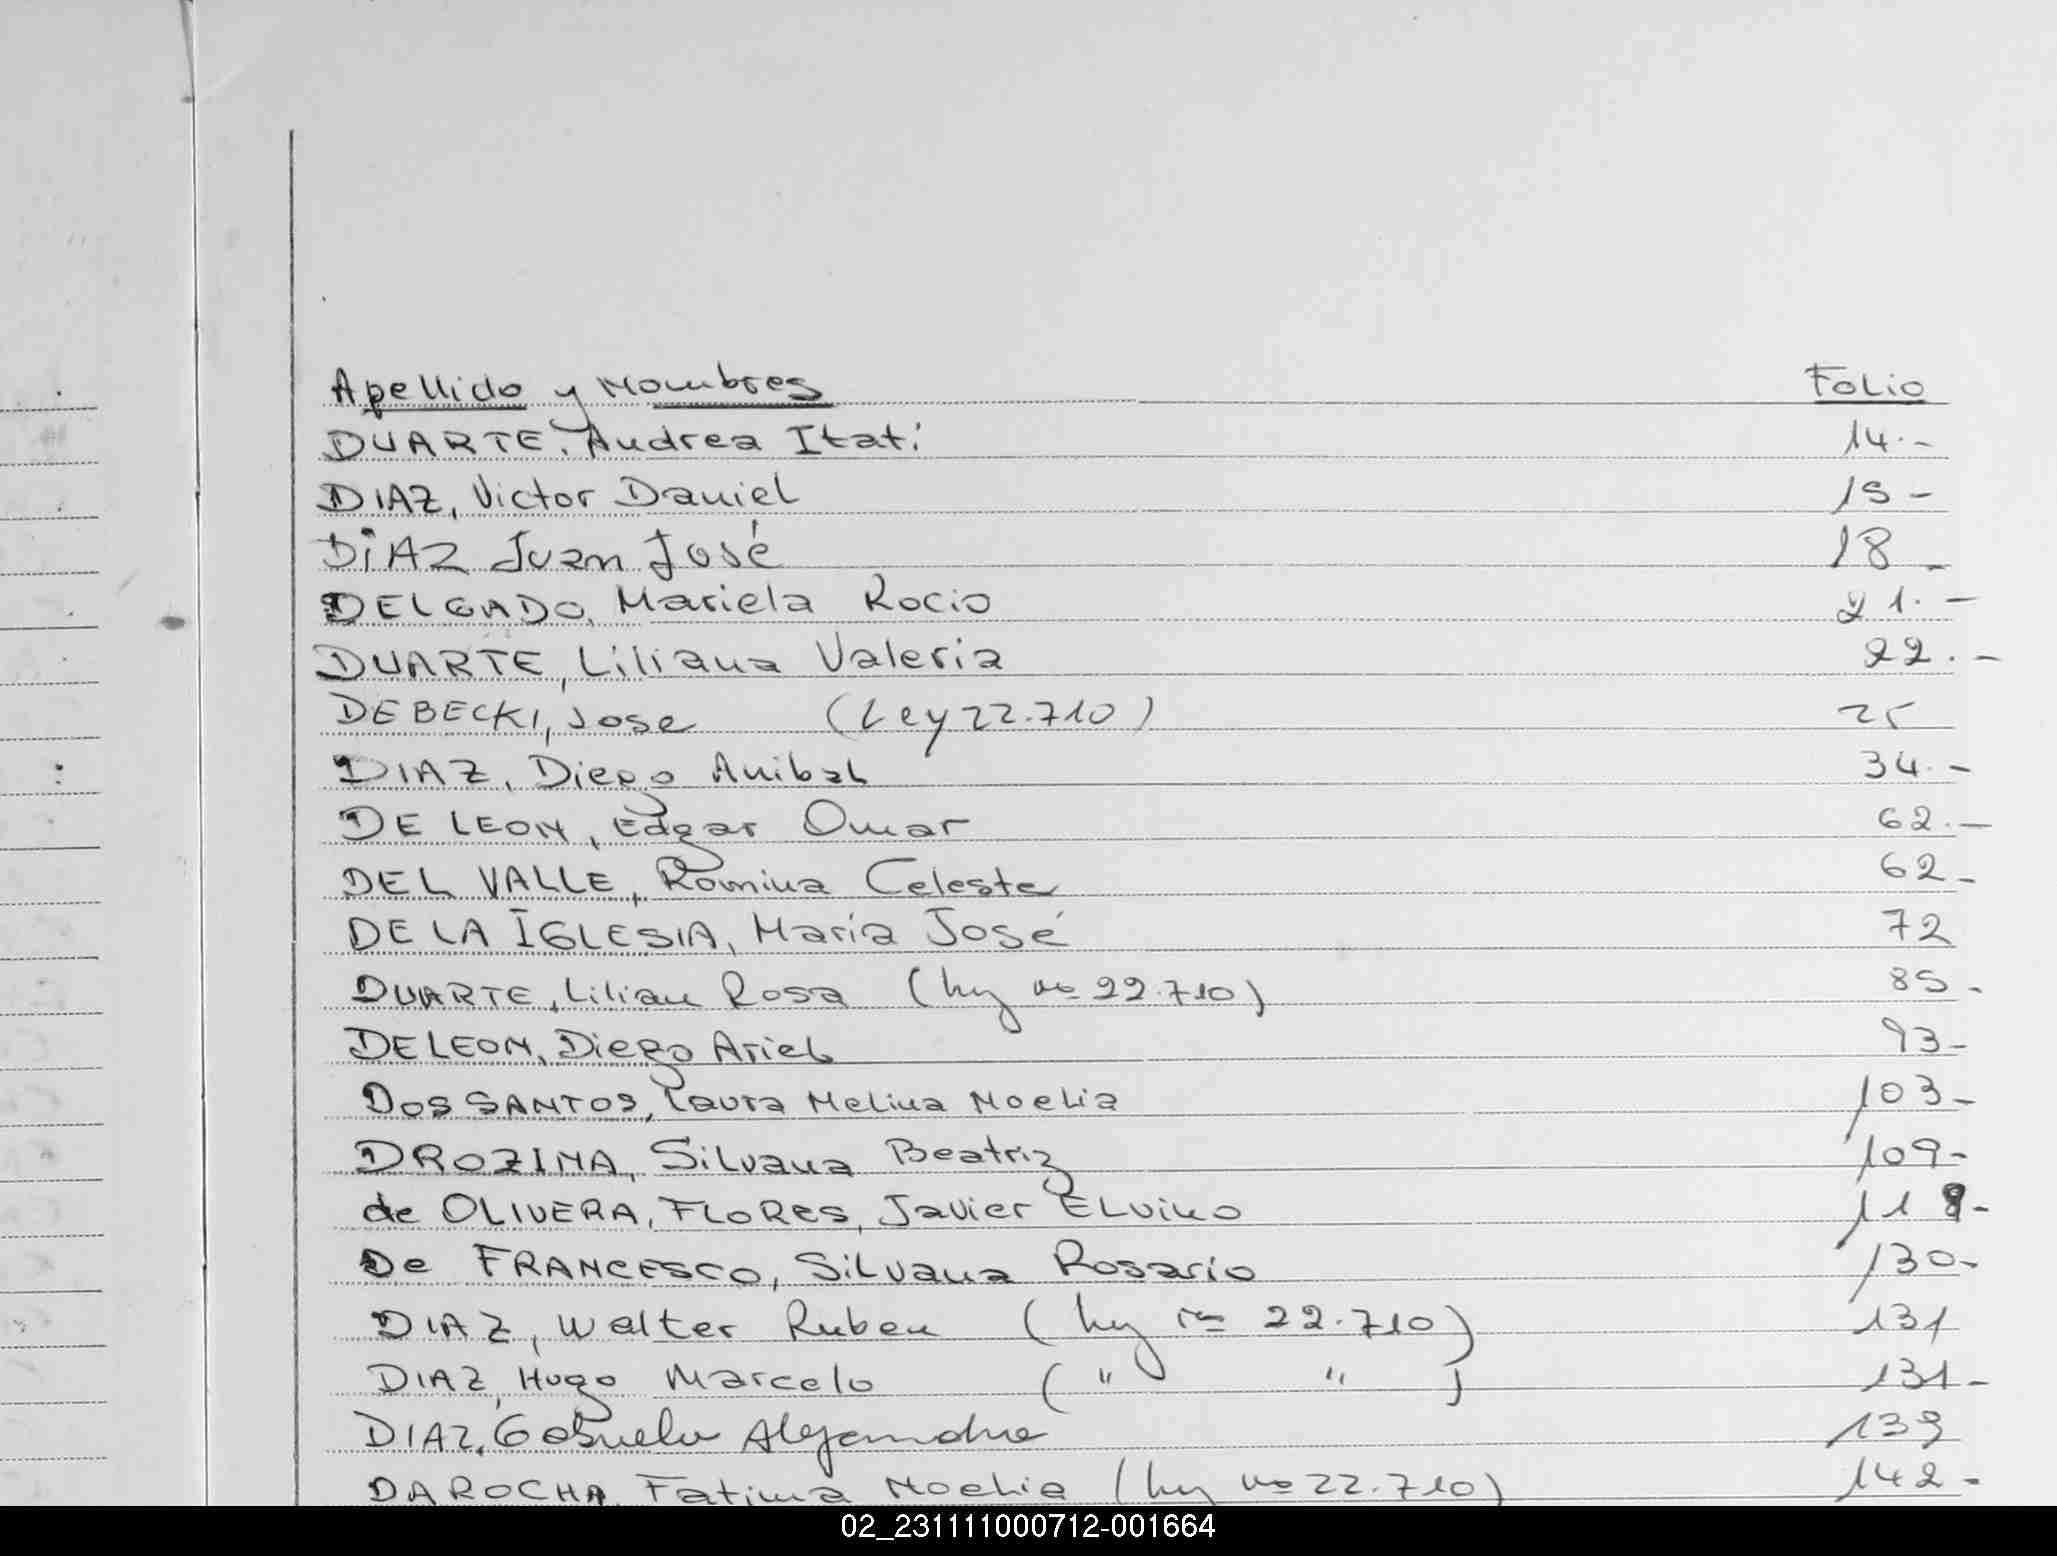 Apellido y Nombres Folio
DUARTE, Andrea Itatí 14.-
DIAZ, Victor Daniel 15-
DÍAZ Juan José 18-
DELGADO, Mariela Rocio 21.-
DUARTE, Liliana Valeria 22.-
DEBECKI, Jose (Ley 22.710) 25
DIAZ, Diego Anibal 34.-
DE LEON, Edgar Omar 62.-
DEL VALLE, Romina Celeste 62-
DE LA IGLESIA, María José 72
DUARTE, Lilian Rosa (ley nº 22.710) 85.
DE LEON, Diego Ariel 93-
DOS SANTOS, Laura Melina Noelia 103-
DROZINA, Silvana Beatriz 109-
de OLIVERA, FLORES, Javier ELVINO 118-
De FRANCESCO, Silvana Rosario 130-
DIAZ, Walter Ruben (ley nº 22.710) 131
DIAZ, Hugo Marcelo ( " " ) 131-
DIAZ, Gabriela Alejandra 139
DA ROCHA, Fatima Noelia (ley nº 22.710) 142-
02_231111000712-001664